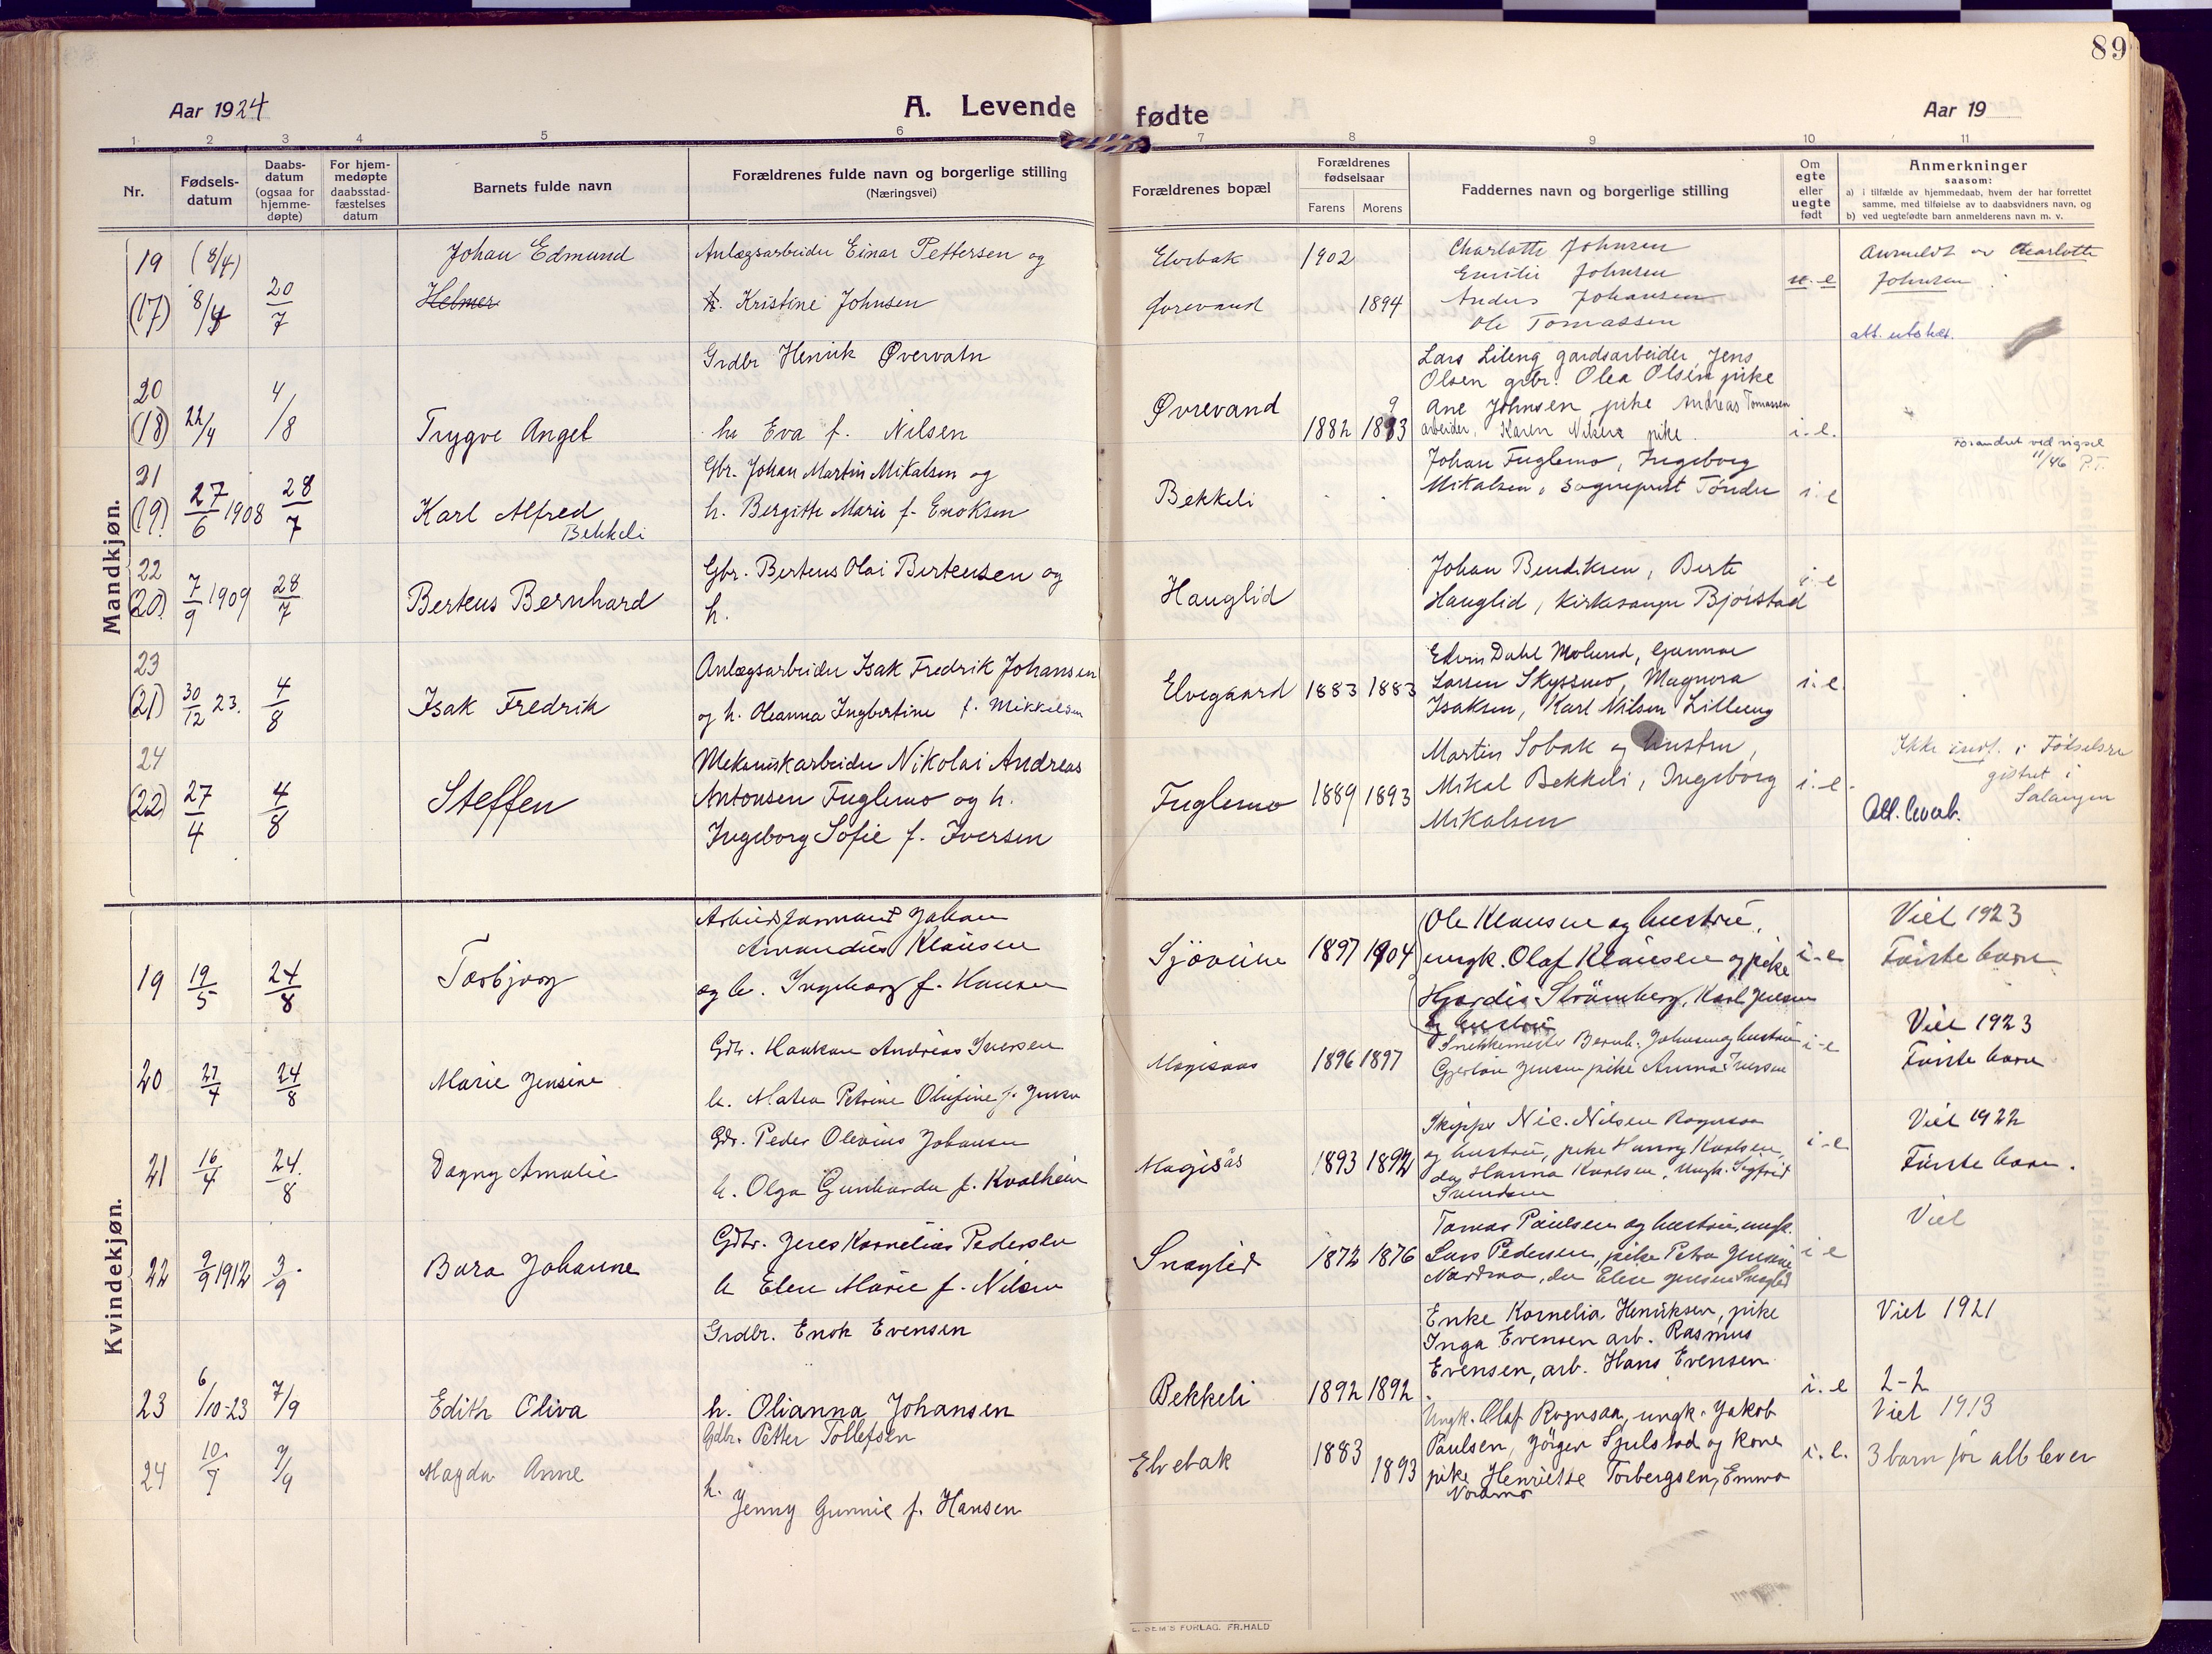 89
Aar 1924
A. Levende fødte
Aar 19
1 2 3 4 5 6 7 8 9 10 11
Nr.
Fødsels-
datum
Daabs-
datum
(ogsaa for
hjemme-
døpte)
For hjem-
medøpte
daabsstad-
fæstelses
datum
Barnets fulde navn
Forældrenes fulde navn og borgerlige stilling
(Næringsvei)
Forældrenes bopæl
Forældrenes
fødselsaar
Farens Morens
Faddernes navn og borgerlige stilling
Om
egte
eller
uegte
født
Anmerkninger
saasom:
a) i tilfælde av hjemmedaab, hvem der har forrettet
samme, med tilføielse av to daabsvidners navn, og
b) ved uegtefødte barn anmelderens navn m. v.
Mandkjøn.
19 (8/4) Johan Edmund Anlægsarbeider Einar Pettersen og Elvebak 1902 Charlotte Johnsen
Emilie Johnsen
Anmeldt av Charlotte
Johnsen
(17) 8/4 20/7 Helmer Kristine Johnsen 1894 Anders Johansen
u.e
Ole Tomassen
att. utstæt.
20 Grdbr Henrik Øvervatn Lars Lileng gardsarbeider, Jens
Olsen grbr. Olea Olsen pike
(18) 22/4 4/8 Trygve Angel hu Eva f. Nilsen Øvrevand 1882 1893 Ane Johnsen pike Andreas Tomassen
arbeider, Karen Nilsen pike. i.e.
Forandret ved rigsel
11/46 P.T.
21 Gbr. Johan Martin Mikalsen og Johan Fuglemo, Ingeborg
(19) 27/6 1908 28/7 Karl Alfred h. Bergitte Marie f. Enoksen Bekkeli Mikalsen, Sogneprest Tønder i.e
Bekkeli
22 Gbr. Berteus Olai Berteusen og Johan Bendiksen, Berte
(20) 7/9 1909 28/7 Berteus Bernhard h. Hauglid Hauglid, Kirkesanger Bjørstad i.e
23 Anlægsarbeider Isak Fredrik Johansen Edvin Dahl Molund, Gunnar
(21) 30/12 23. 4/8 Isak Fredrik og h. Oleanna Ingbertine f. Mikkelsen Elvegaard 1883 1883 Larsen Skyssmo, Magnora i.e.
Isaksen, Karl Nilsen Lilleng
24 Mekaniskarbeider Nikolai Andreas Martin Sobak og hustru,
(22) 27/4 4/8 Steffen Antonsen Fuglemo og h. Fuglemo 1889 1893 Mikal Bekkeli, Ingeborg i.e.
Ingeborg Sofie f. Iversen Mikalsen
Ikke indf. i Fødselsre
gistret i
Salangen
Att. levert.
Kvindekjøn.
Arbeidsformand Johan
Amandus Klausen
19 19/5 24/8 Torbjørg og h. Ingeborg f. Hansen Sjøveien 1897 1904 Ole Klausen og hustru,
ungk. Olaf Klausen og pike i-e
Hjørdis Strømberg, Karl Jensen
og hustru
Viet 1923
Første barn
20 27/4 24/8 Marie Jensine Gdbr. Haakan Andreas Iversen
h. Matea Petrine Olufine f. Jensen
1896 1897 Snekkermester Bernh. Johnsen og hustru i-e
Jensen pike Anna Iversen
Viet 1923
Første barn
21 16/4 24/8 Dagny Amalie Gdbr. Peder Olevius Johansen
h. Olga Gunharda f. Kvalheim
Magisås 1893 1892 Skipper Nic. Nilsen
og hustru, pike Karlsen, i-e
do Hanna Karlsen, Ungk. Sigfrid
Svendsen
Viet 1922
Første barn.
22 9/9 1912 3/9 Bara Johanne Gdbr. Jens Kornelius Pedersen
h Elen Marie f. Nilsen
1872 1876 Tomas Paulsen og hustru, ungk.
Lars Pedersen, pike Petra Jensine i e
Nordmo, do Elen Jensen
Viet
23 6/10-23 7/9 Edith Oliva Grdbr. Enok Evensen
h. Olianna Johansen
Bekkeli 1892 1892 Enke Kornelia Henriksen, pike
Inga Evensen arb. Rasmus
Evensen, arb. Hans Evensen i.e
Viet 1921
2-2
24 10/7 7/9 Magda Anne Gdbr. Petter Tollefsen
h. Jenny Gunnie f. Hansen
Elvebak 1883 1893 Ungk. Olaf Rognsaa, ungk. Jakob
Paulsen, Jörgen Sjulstad og kone i.e.
pike Henriette Torbergsen, Emma
Nordmo
Viet 1913
3 barn før alle lever
FORLAG. FR.HALD